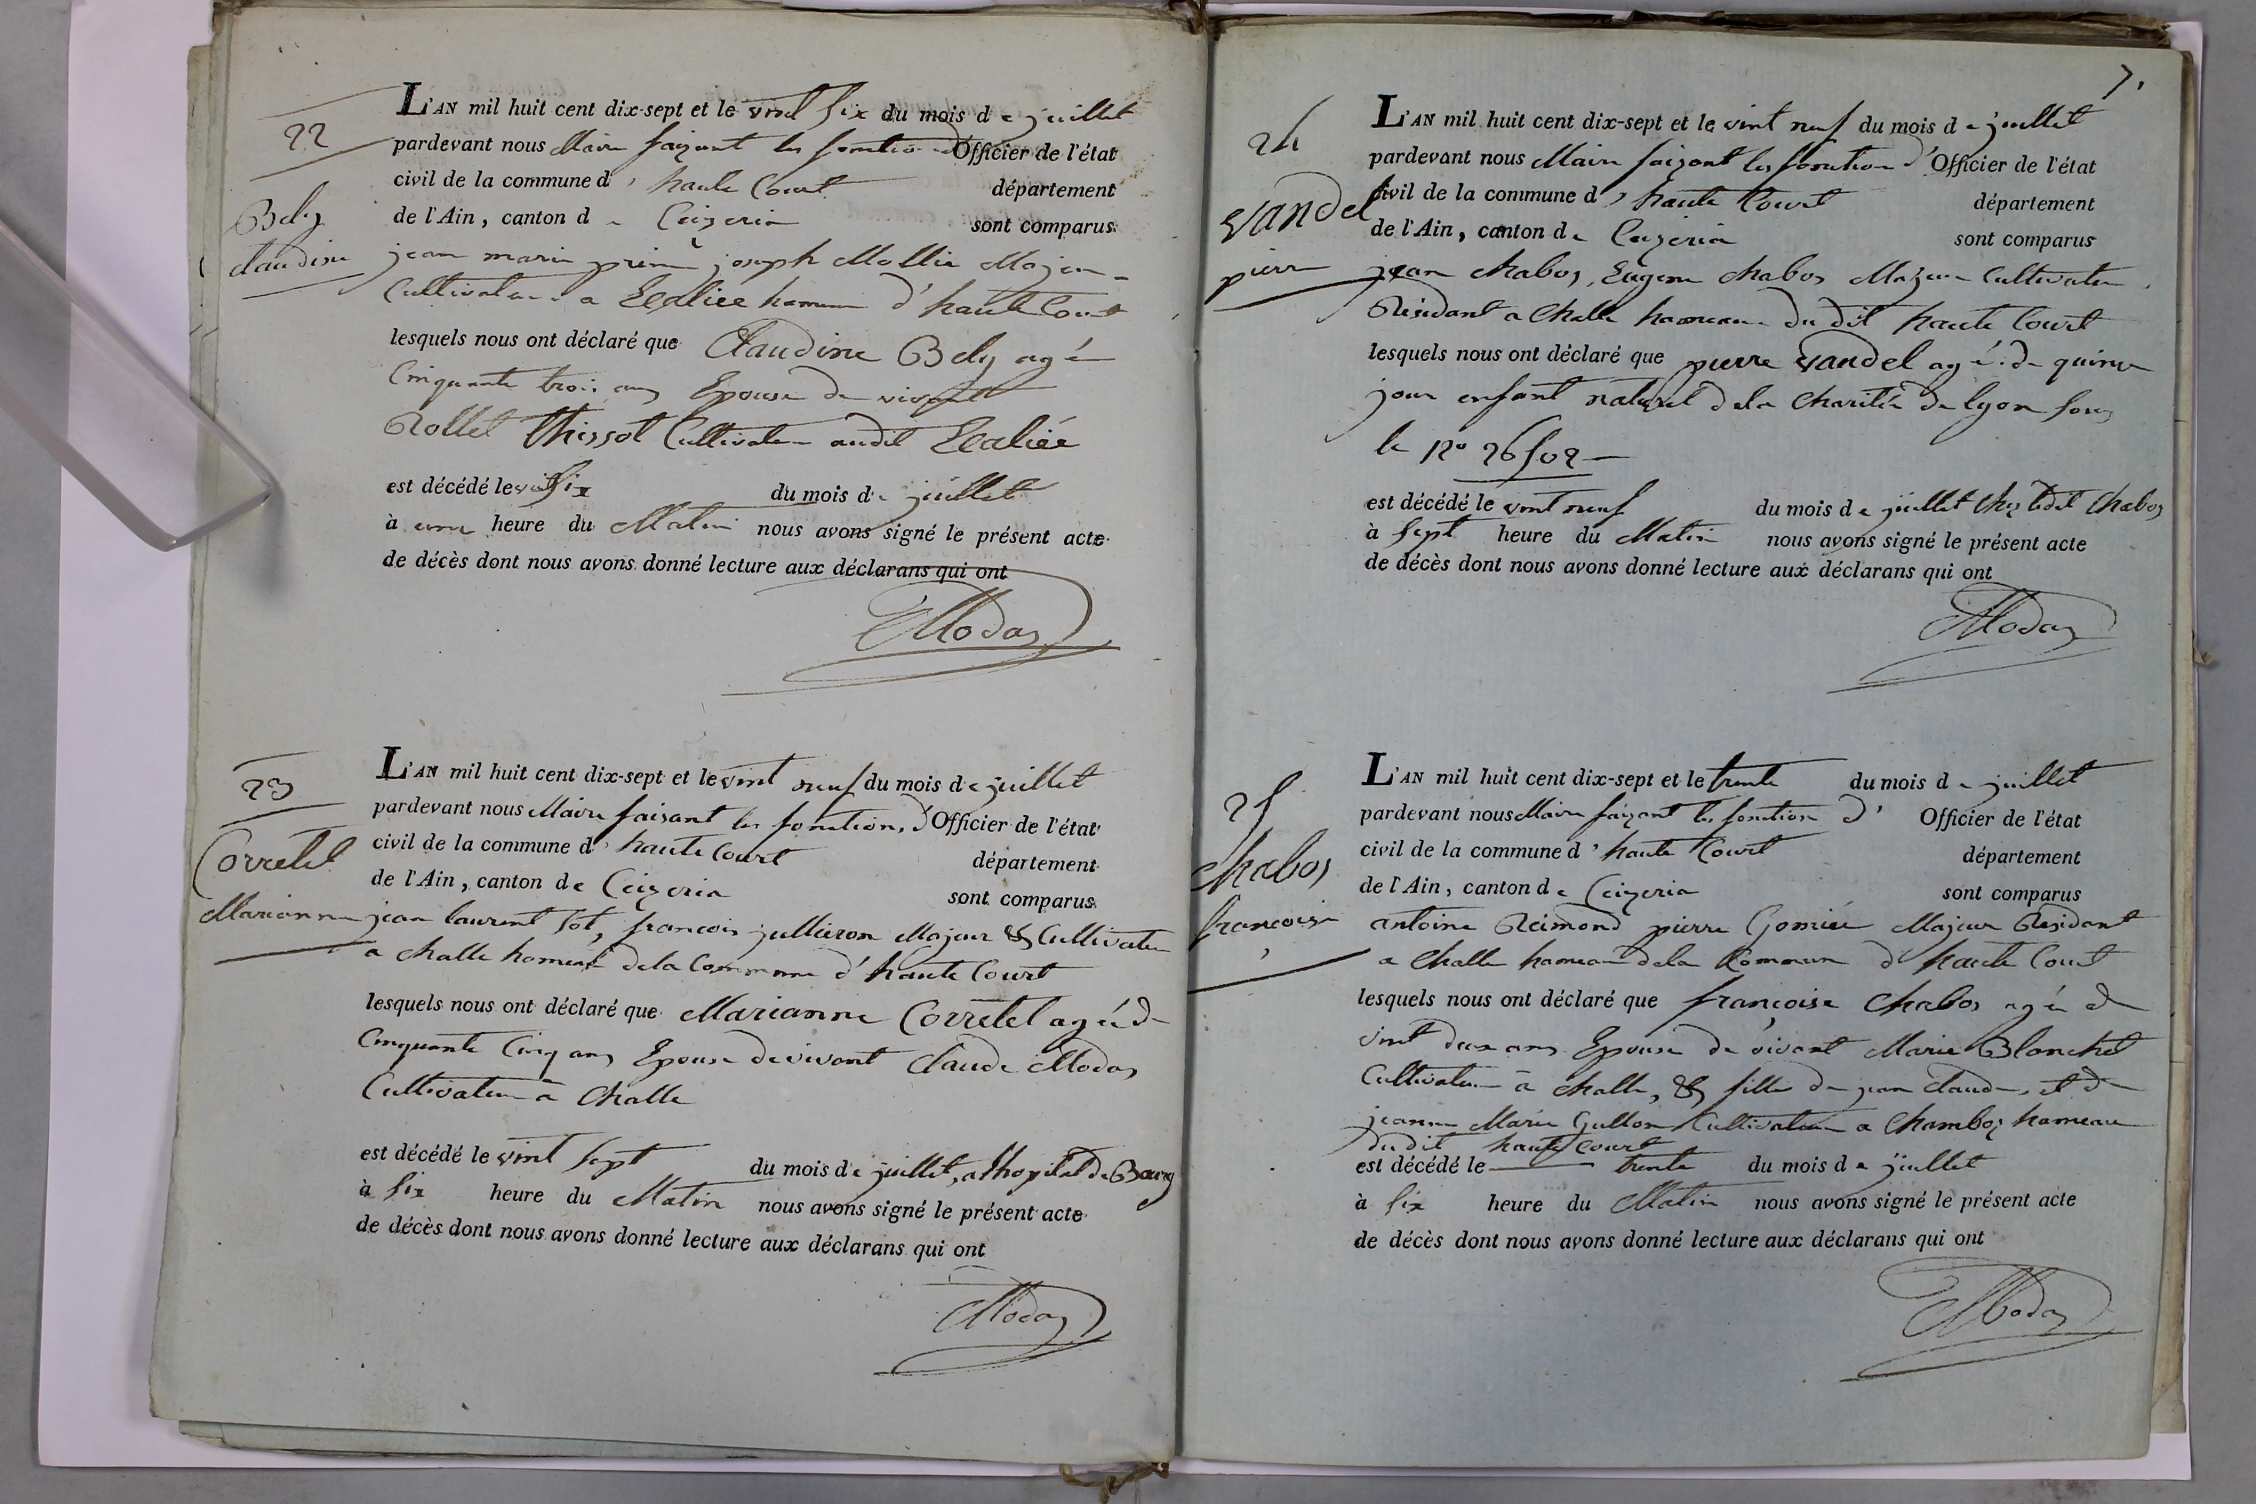 22
Bely
Claudine
L'AN mil huit cent dix-sept et le vint six du mois de juillet
pardevant nous Maire faizant les fonction d'Officier de l'état
civil de la commune d'haute Court département
de l'Ain, canton de Ceizeria sont comparus
jean marie joseph Mollie Majeu
Cultivateur a hameau d'haute Court
lesquels nous ont déclaré que Claudine Bely agée
Cinquante trois ans Epouse de vivant
Rollet Thissot Cultivateur audit
est décédé le vint six du mois de juillet
à une heure du Matin nous avons signé le présent acte
de décès dont nous avons donné lecture aux déclarans qui ont
Modas
23
Corretel
Marianne
L'AN mil huit cent dix-sept et le vint neuf du mois de juillet
pardevant nous Maire faisant les fonctions d'Officier de l'état
civil de la commune d'haute Court département
de l'Ain, canton de Ceizeria sont comparus
jean laurent Sot, francois jullieron Majeur & Cultivateur
a Challe hameau dela Commune d'haute Court
lesquels nous ont déclaré que Marianne Corretel agée de
Cinquante Cinq ans Epouse de vivant Claude Modas
Cultivateur à Challe
est décédé le vint sept du mois de juillet, a lhopital de Bourg
à six heure du Matin nous avons signé le présent acte
de décès dont nous avons donné lecture aux déclarans qui ont
Modas
7.
24
Vandel
pierre
L'AN mil huit cent dix-sept et le vint neuf du mois de juillet
pardevant nous Maire faizant les fonction d'Officier de l'état
civil de la commune d'haute Court département
de l'Ain, canton de Ceizeria sont comparus
jean Chabos, Eugene Chabos Majeur Cultivateur
Résidant a Challe hameau du dit haute Court
lesquels nous ont déclaré que pierre Vandel agé de quinze
jour enfant naturel dela Charitée de lyon sous
le No 26502
est décédé le vint neuf du mois de juillet Chez ledit Chabos
à sept heure du Matin nous avons signé le présent acte
de décès dont nous avons donné lecture aux déclarans qui ont
Modas
25
Chabos
francoise
L'AN mil huit cent dix-sept et le trente du mois de juillet
pardevant nous Maire faizant les fonction d' Officier de l'état
civil de la commune d'haute Court département
de l'Ain, canton de Ceizeria sont comparus
antoine Reimond pierre Gomiée Majeur Residant
a Challe hameau dela Commune d'haute Court
lesquels nous ont déclaré que françoise Chabos agée de
vint deux ans Epouse de vivant Marie Blanchet
Cultivateur à Challe, & fille de jean Claude, et de
jeanne Marie Gullon Cultivateur a Chamboz hameau
dudit haute Court
est décédé le trente du mois de juillet
à six heure du Matin nous avons signé le présent acte
de décès dont nous avons donné lecture aux déclarans qui ont
Modas